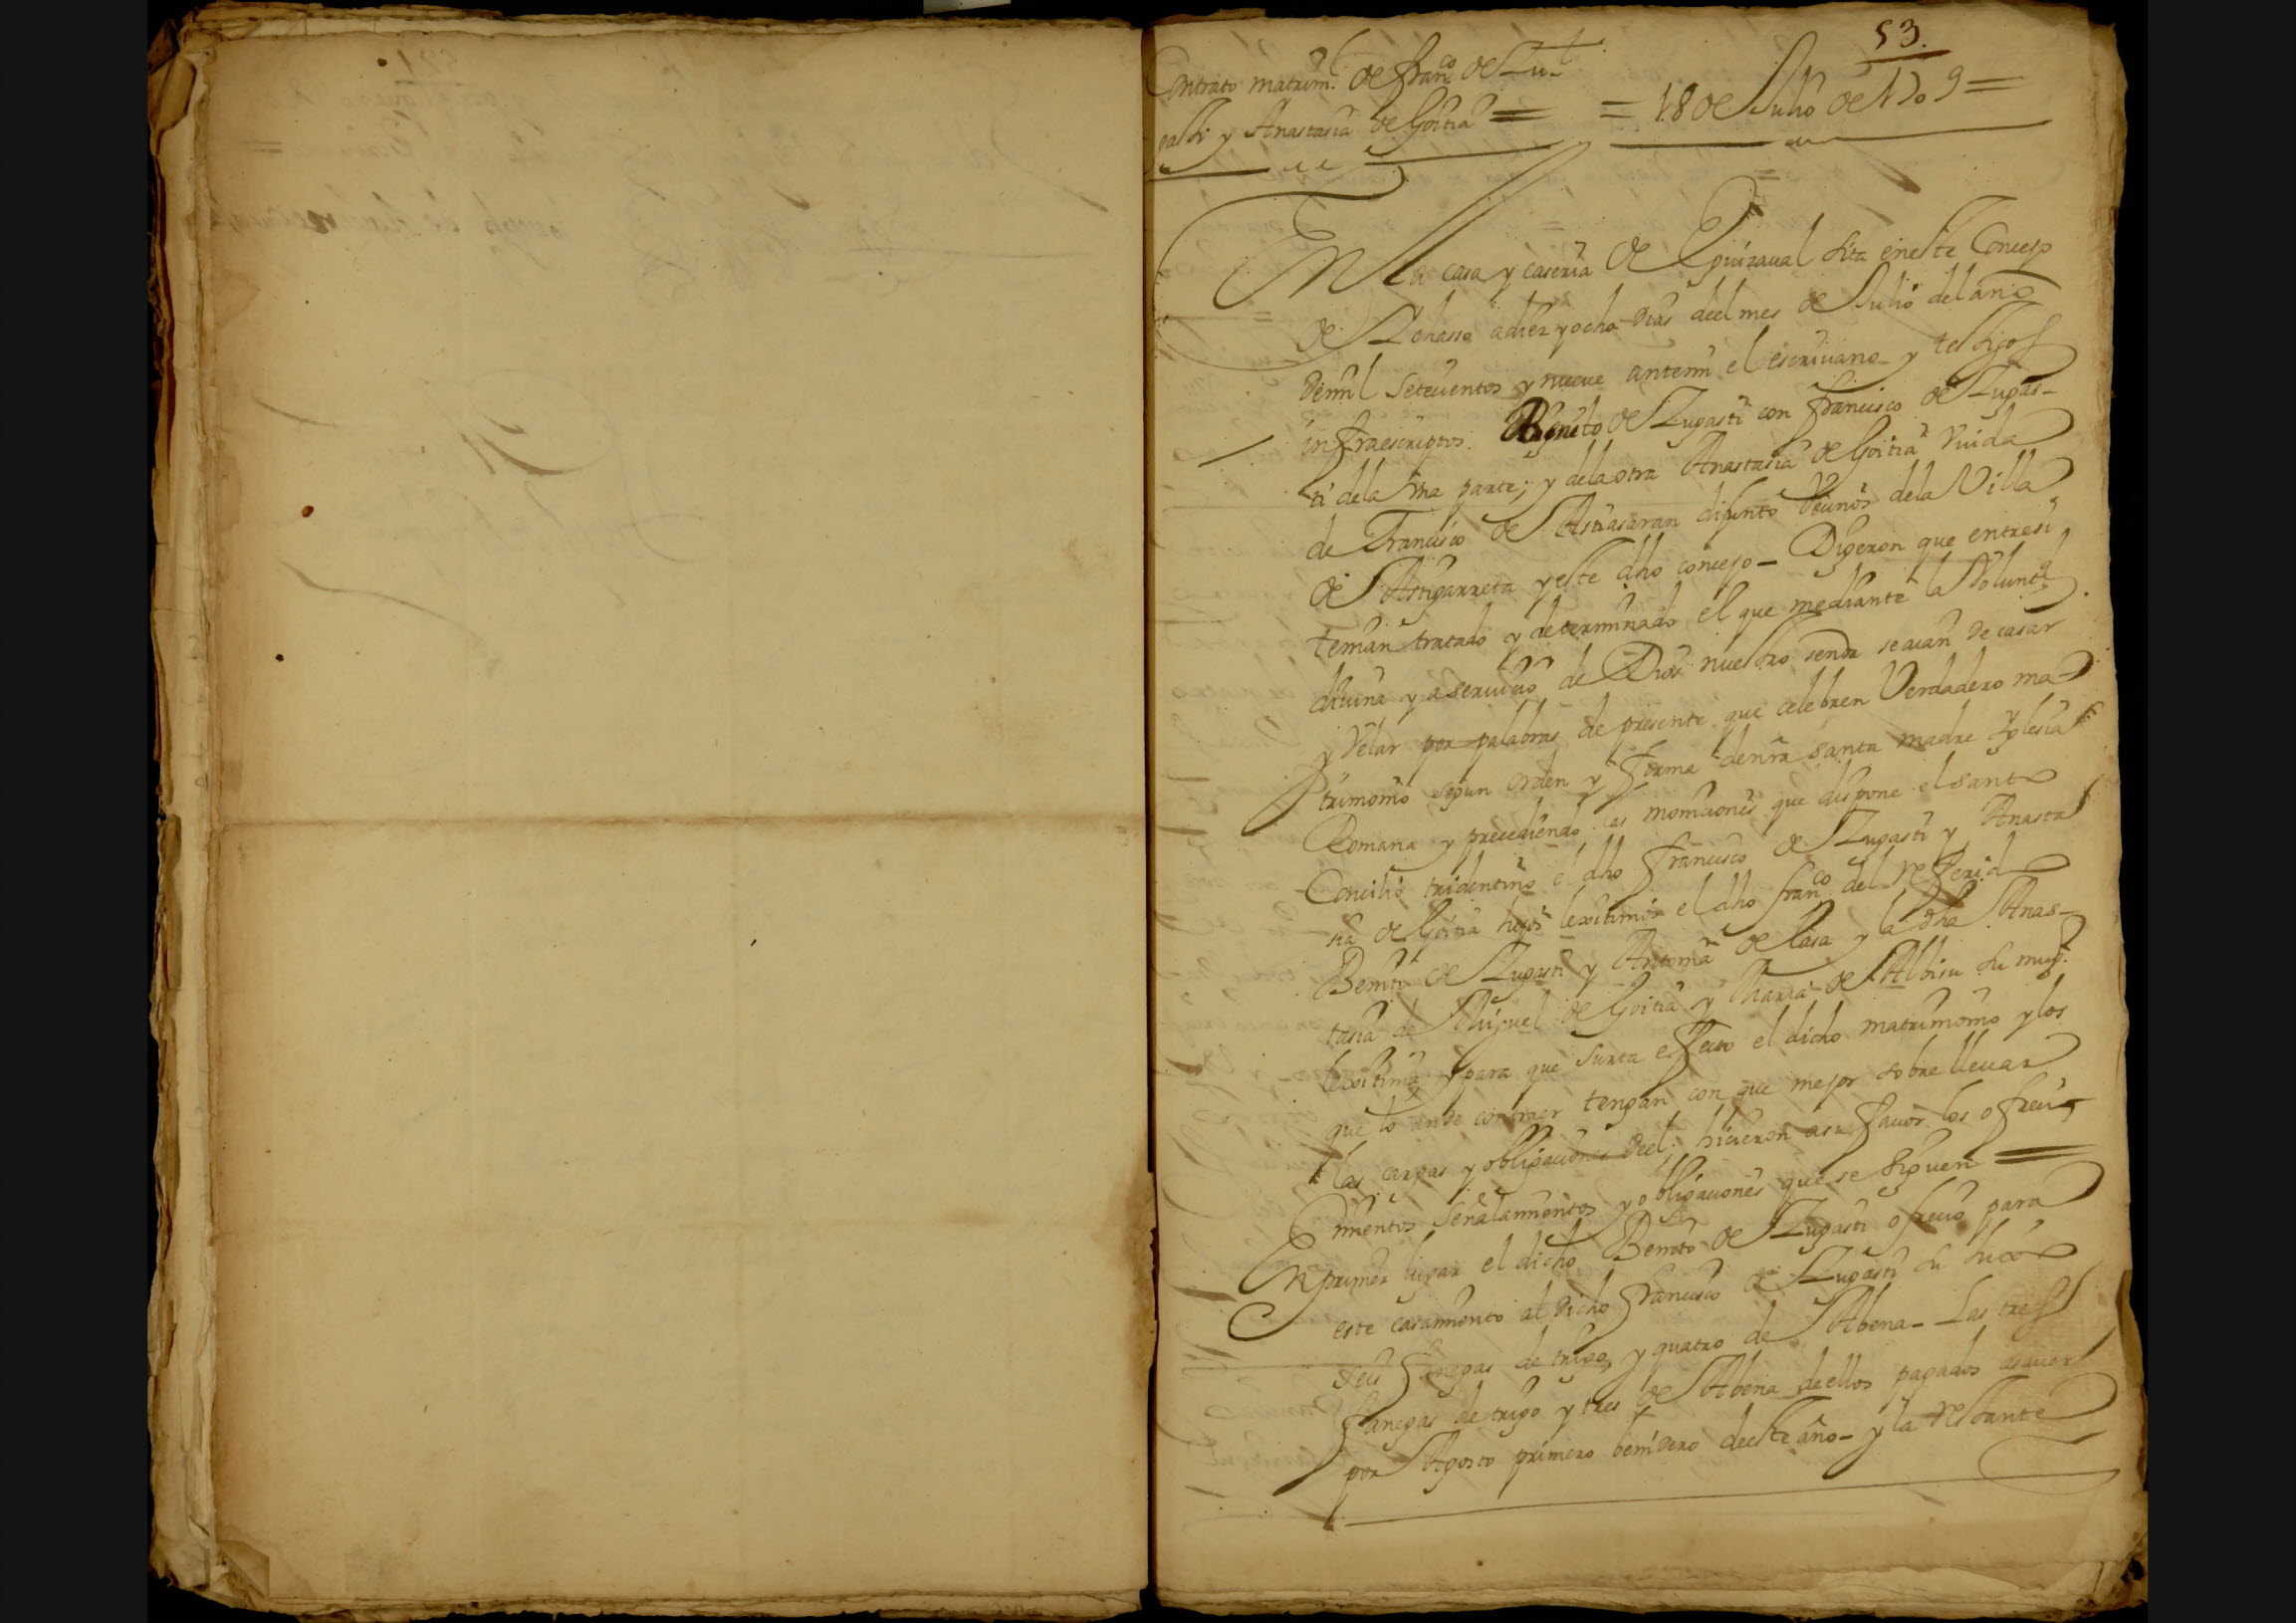 53.
Contrato matrim.l de fran.co de Zu-
gasti y Anastasia de Goitia = = 18 de Julio de 1709 =
En la casa y caseria de Eguizaual sita en este Concejo
de Zerasso a diez y ocho dias del mes de Julio del año
de mil setecientos y nueue ante mi el escriuano y testigos
infraescriptos. Benito de Zugasti con francisco de Zugas-
ti de la vna parte; y de la otra Anastasia de Goitia Viuda
de Francisco de Asuasaran difunto Vecinos de la Villa
de Astigarreta y este dho concejo - Digeron que entre si
tenian tratado y determinado el que mediante la Volunt.d
diuina y a seruicio de Dios nuestro senor se aian de casar
y Velar por palabras de presente que celebren Verdadero ma-
trimonio segun orden y forma de nra santa madre Yglesia
Romana y precediendo las moniciones que dispone el santo
Concilio tridentino el dho francisco de Zugasti y Anasta
sia de Goitia hijos lexitimos el dho fran.co del referido
Benito de Zugasti y Antonia de Lasa y la dha Anas-
tasia de Miguel de Goitia y Maria de Albisu su mug.r
lexitima y para que surta effecto el dicho matrimonio y los
que lo an de contraer tengan con que mejor sobrelleuar
las cargas y obligaciones deel; hicieron a su fauor los ofreci-
mientos señalamientos y obligaciones que se siguen =
En primer lugar el dicho Benito de Zugasti ofrecio para
este casamiento al dicho francisco de Zugasti su hixo
seis fanegas de trigo, y quatro de Abena - Las tres
fanegas de trigo y tres de Abena de ellos pagados
por Agosto primero benidero de este año - y la restante